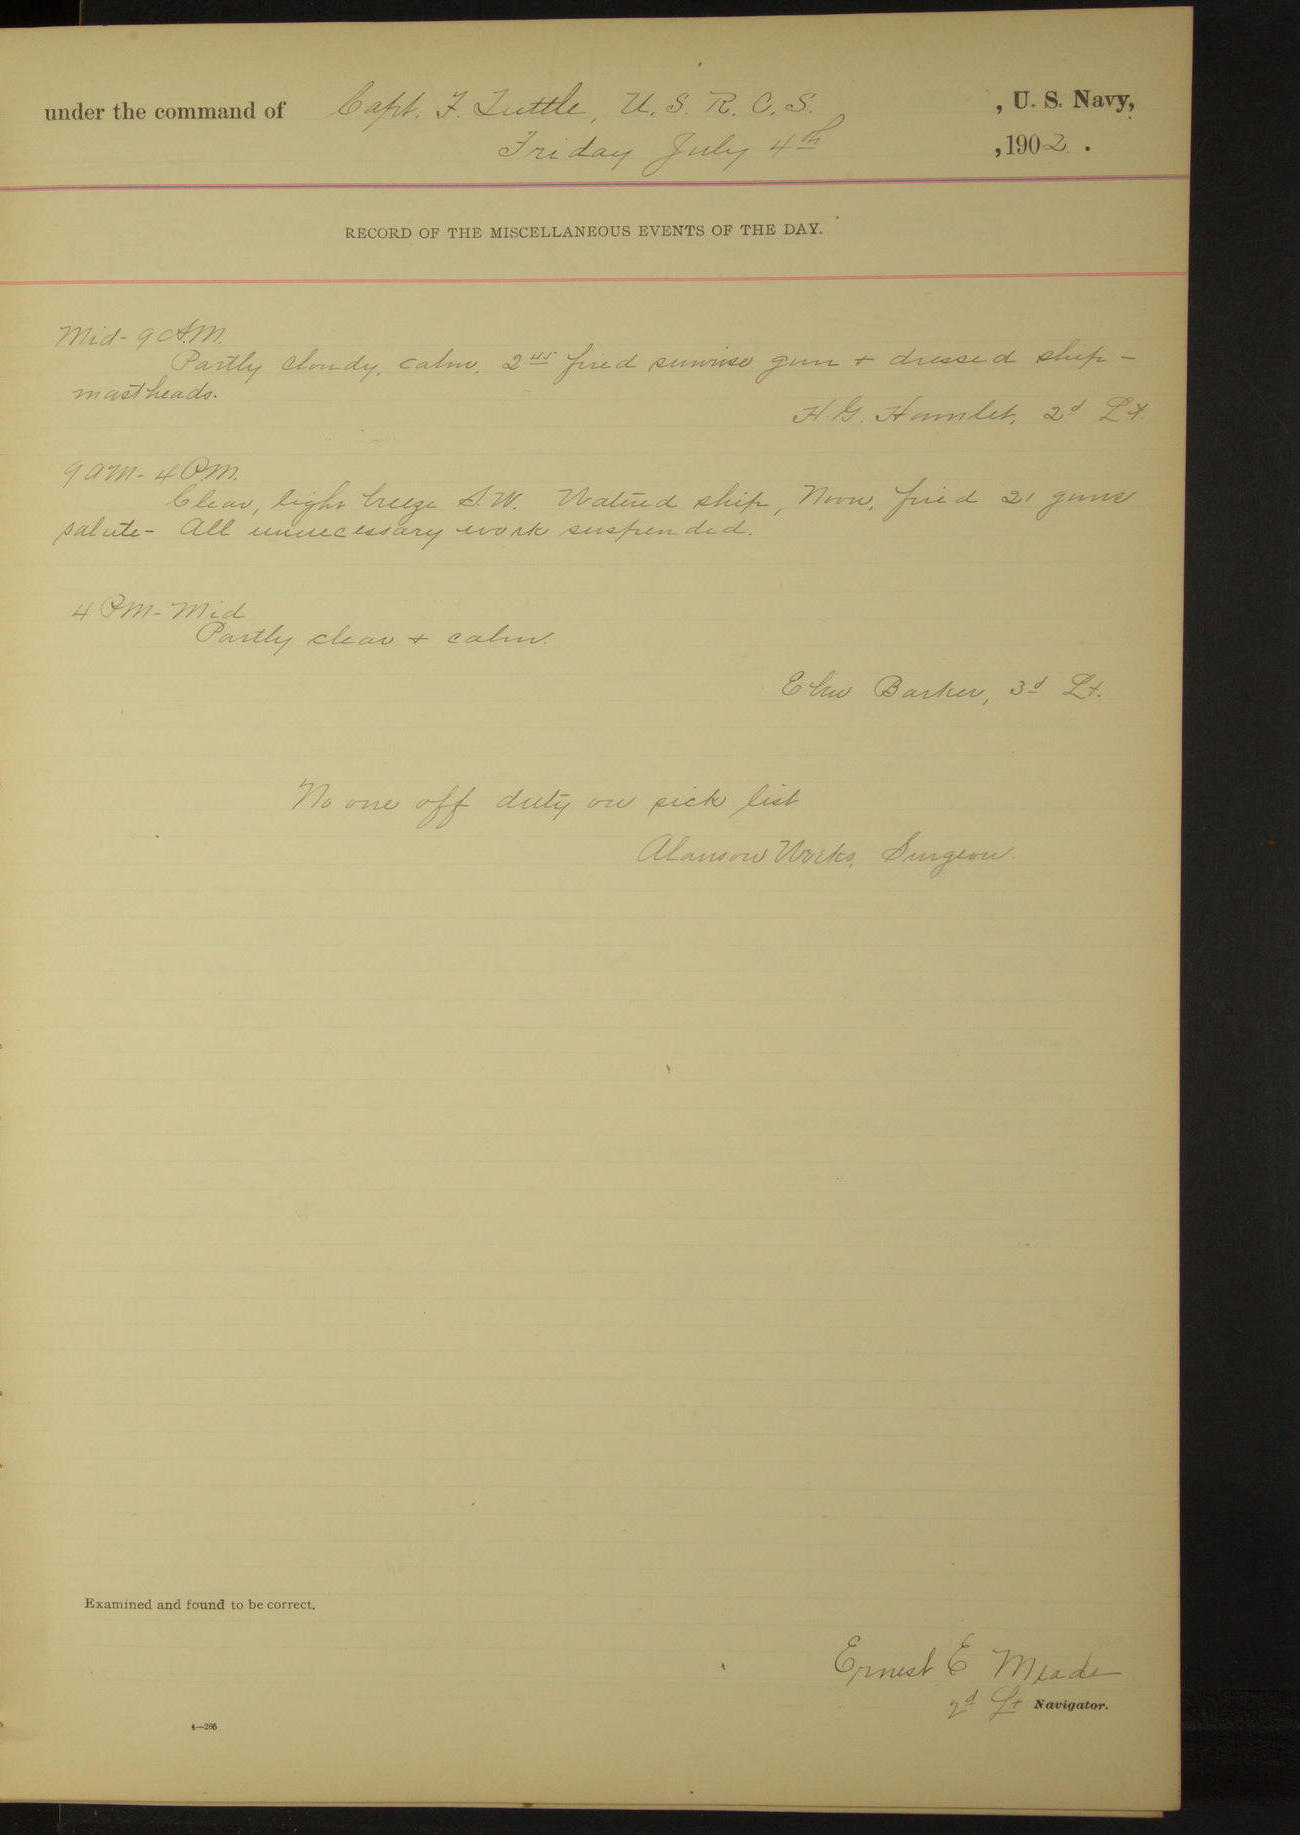 under the command of Capt. F. Tuttle, U. S. R. C. S. , U. S. Navy,
Friday July 4th , 1902 .
RECORD OF THE MISCELLANEOUS EVENTS OF THE DAY.
Mid- 9 A.M.
Partly cloudy, calm. 2 45 fired sunrise gun + dressed ship -
mastheads.
H. G. Hamlet, 2d Lt.
9 am - 4 P.M.
Clear, light breeze S.W. Watered ship, Noon, fired 21 guns
salute - All unnecessary work suspended.
4 PM - Mid
Partly clear + calm.
Barker, 3d Lt.
No one off duty on sick list
Alanson Weeks, Surgeon.
Examined and found to be correct.
Ernest E Meade
2d Lt Navigator.
4—266